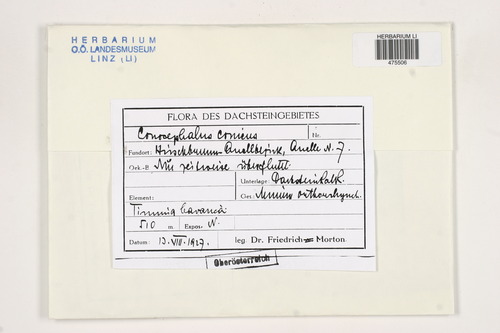 HERBARIUM
O.Ö. LANDESMUSEUM
LINZ (LI)
HERBARIUM LI
475506
FLORA DES DACHSTEINGEBIETES
Conocephalus conicus Nr.
Fundort: Hirschbrunn-Quellbezirk, Quelle N. 7.
Oek.-B. Nur zeitweise überflutet
Unterlage: Dachsteinkalk.
Element: Ges.: Mnium orthorhynch.
Timmia bavarica
510 m Expos. N.
Datum: 13. VIII. 1927. leg. Dr. Friedrich Morton.
Oberösterreich